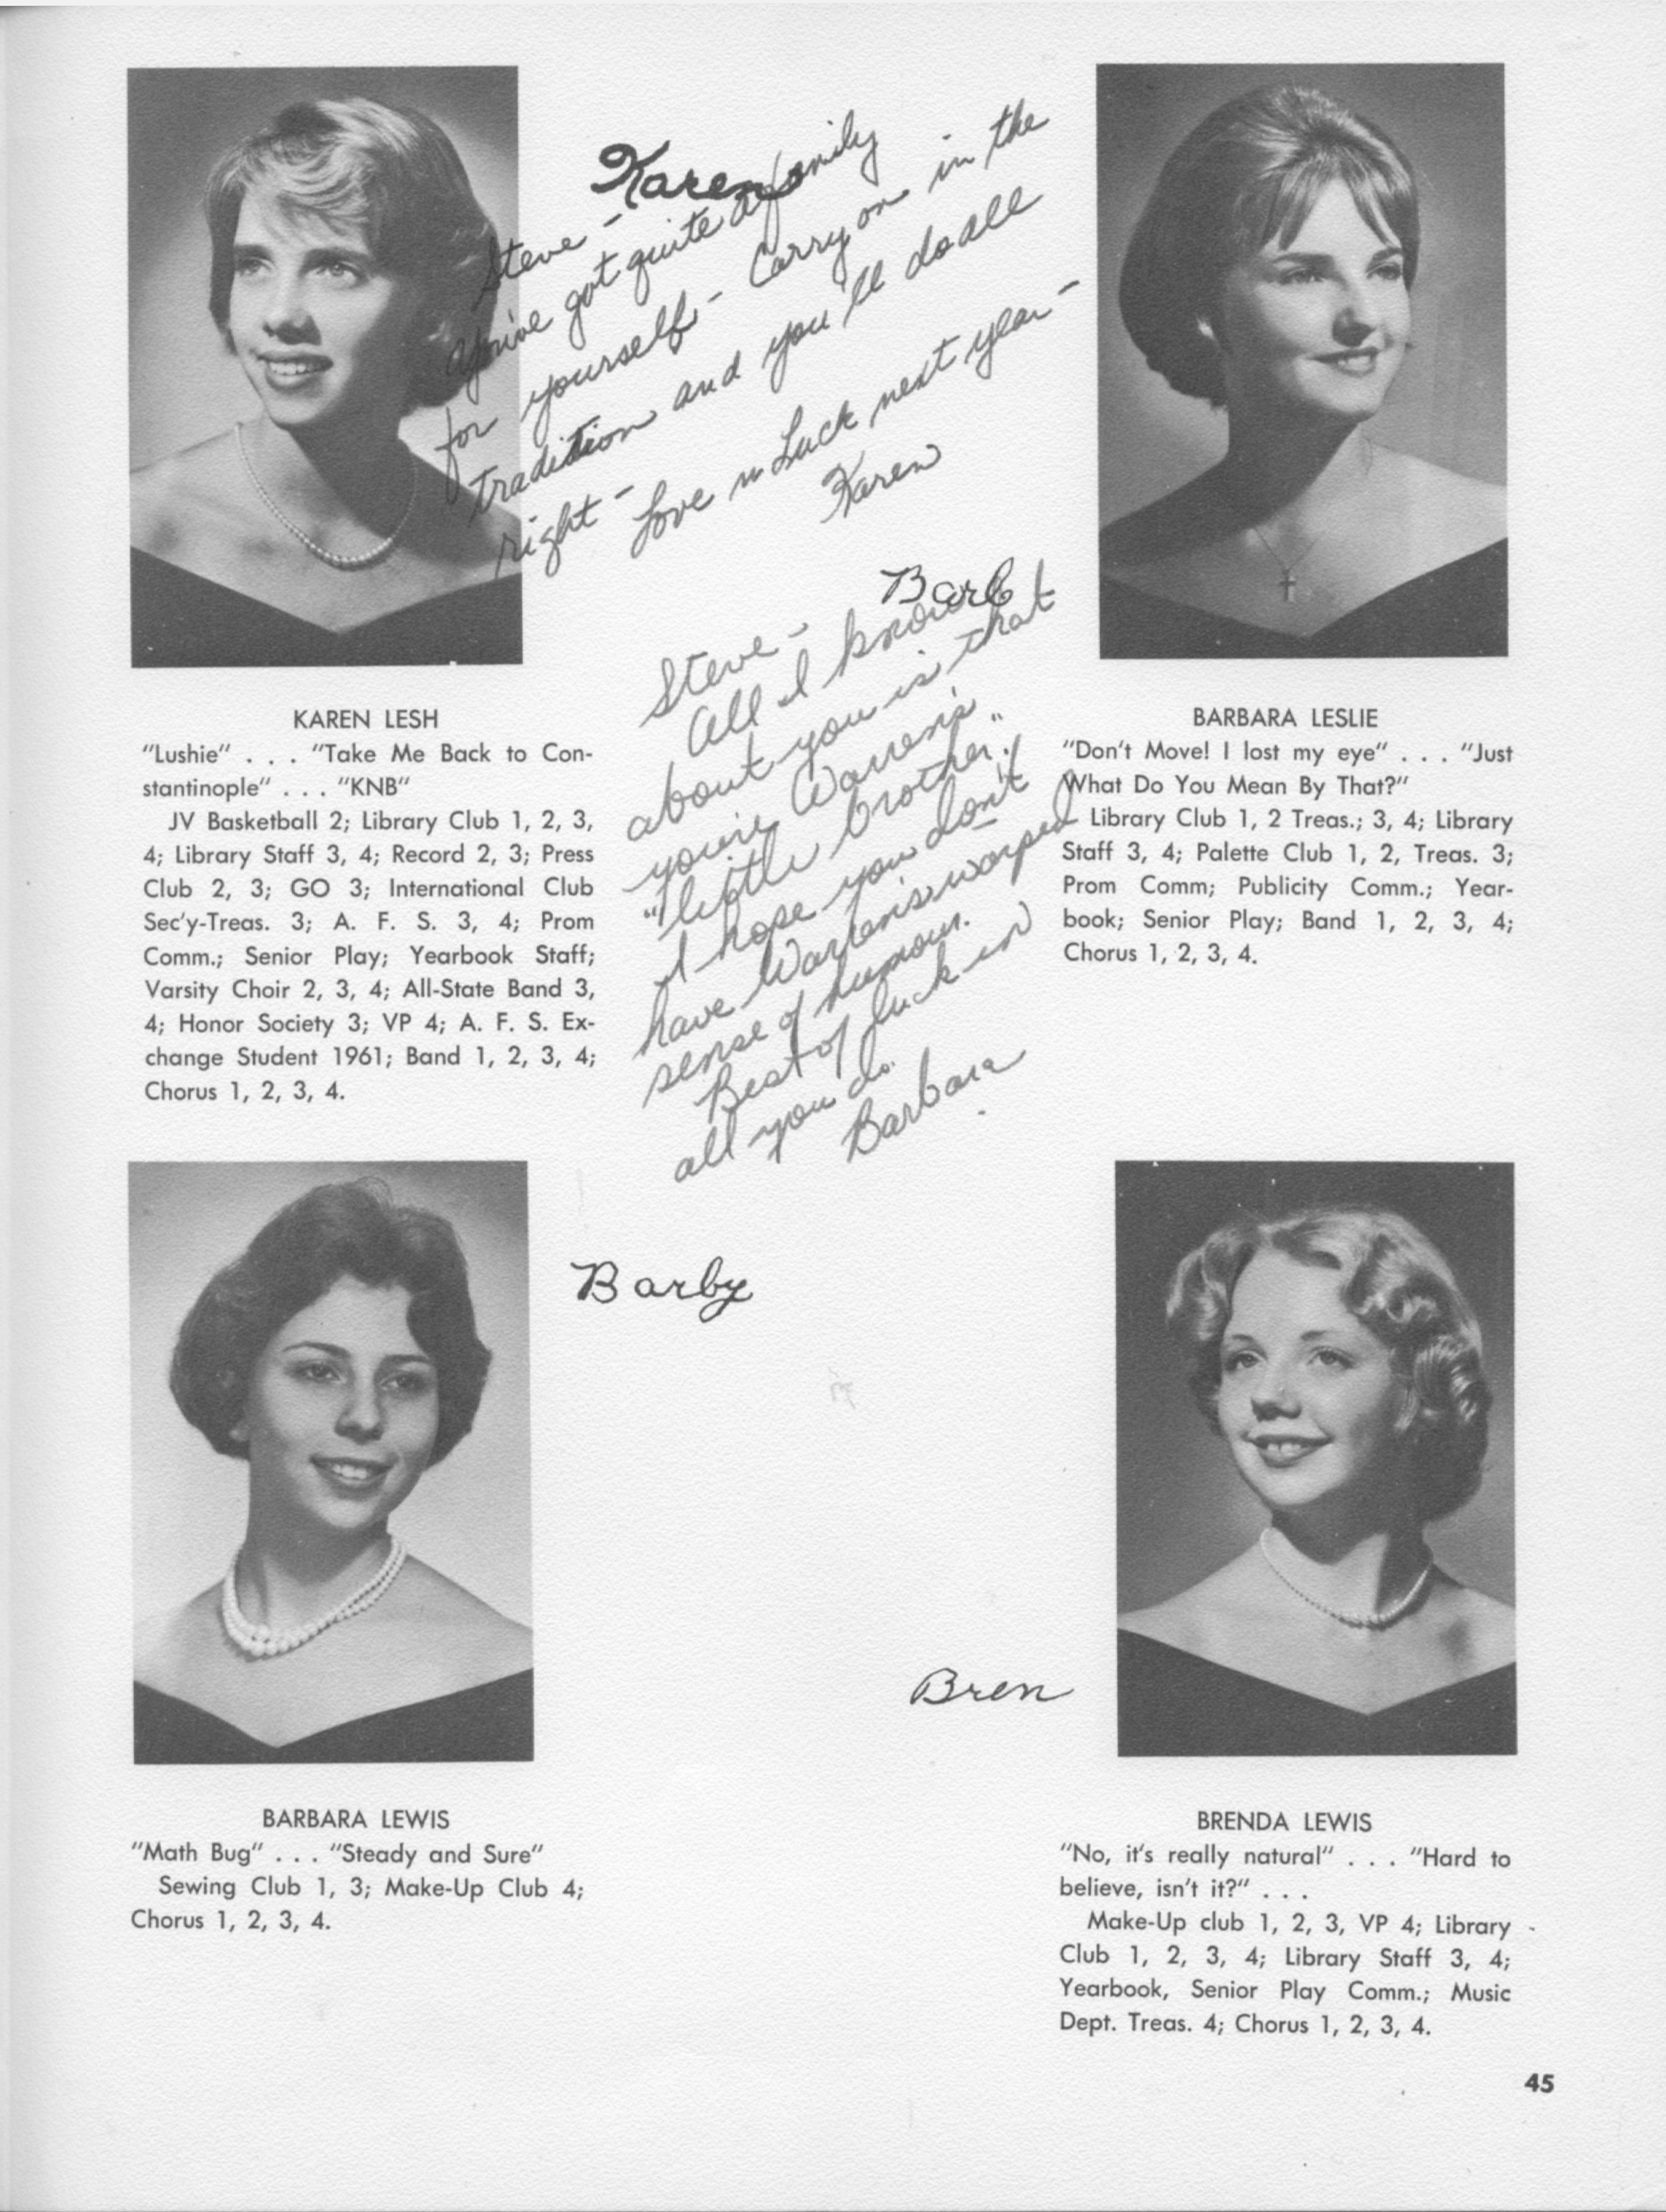 Karen
Steve -
You've got quite a family
for yourself - Carry on in the
tradition and you'll do all
right - Love n Luck next year -
Karen
KAREN LESH
"Lushie" . . . "Take Me Back to Con-
stantinople" . . . "KNB"
JV Basketball 2; Library Club 1, 2, 3,
4; Library Staff 3, 4; Record 2, 3; Press
Club 2, 3; GO 3; International Club
Sec'y-Treas. 3; A. F. S. 3, 4; Prom
Comm.; Senior Play; Yearbook Staff;
Varsity Choir 2, 3, 4; All-State Band 3,
4; Honor Society 3; VP 4; A. F. S. Ex-
change Student 1961; Band 1, 2, 3, 4;
Chorus 1, 2, 3, 4.
Barb
Steve -
All I know
about you is that
you're Warren's
"little brother."
I hope you don't
have Warren's warped
sense of humour.
Best of luck in
all you do.
Barbara
BARBARA LESLIE
"Don't Move! I lost my eye" . . . "Just
What Do You Mean By That?"
Library Club 1, 2 Treas.; 3, 4; Library
Staff 3, 4; Palette Club 1, 2, Treas. 3;
Prom Comm; Publicity Comm.; Year-
book; Senior Play; Band 1, 2, 3, 4;
Chorus 1, 2, 3, 4.
Barby
BARBARA LEWIS
"Math Bug" . . . "Steady and Sure"
Sewing Club 1, 3; Make-Up Club 4;
Chorus 1, 2, 3, 4.
Bren
BRENDA LEWIS
"No, it's really natural" . . . "Hard to
believe, isn't it?" . . .
Make-Up club 1, 2, 3, VP 4; Library
Club 1, 2, 3, 4; Library Staff 3, 4;
Yearbook, Senior Play Comm.; Music
Dept. Treas. 4; Chorus 1, 2, 3, 4.
45